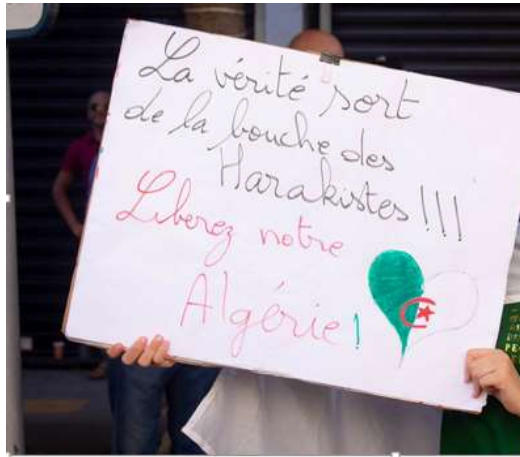 La vérité sort
de la bouche des
Harakistes !!!
Liberez notre
Algérie !